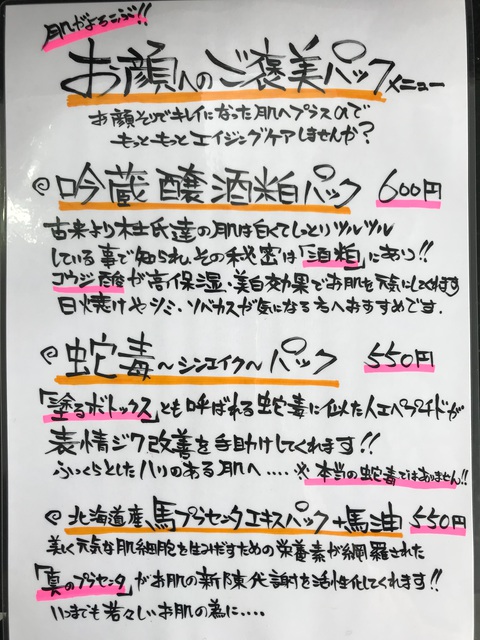 肌がよろこぶ!!
お顔へのご褒美パックメニュー
お顔そりでキレイになった肌へプラスαで
もっともっとエイジングケアしませんか?
吟蔵醸酒粕パック 600円
古来より杜氏達の肌は白くてしっとりツルツル
している事で知られ、その秘密は「酒粕」にあり!!
コウジ酸が高保湿・美白効果でお肌を元気にしてくれます
日焼けやシミ・ソバカスが気になる方へおすすめです.
蛇毒〜シンエイク〜パック 550円
「塗るボトックス」とも呼ばれる蛇毒に似た人工ペプチドが
表情ジワ改善を手助けしてくれます!!
ふっくらとしたハリのある肌へ.... ※本当の蛇毒ではありません!!
北海道産馬プラセンタエキスパック+馬油 550円
美しく元気な肌細胞を生みだすための栄養素が網羅された
「真のプラセンタ」がお肌の新陳代謝を活性化してくれます!!
いつまでも若々しいお肌の為に....